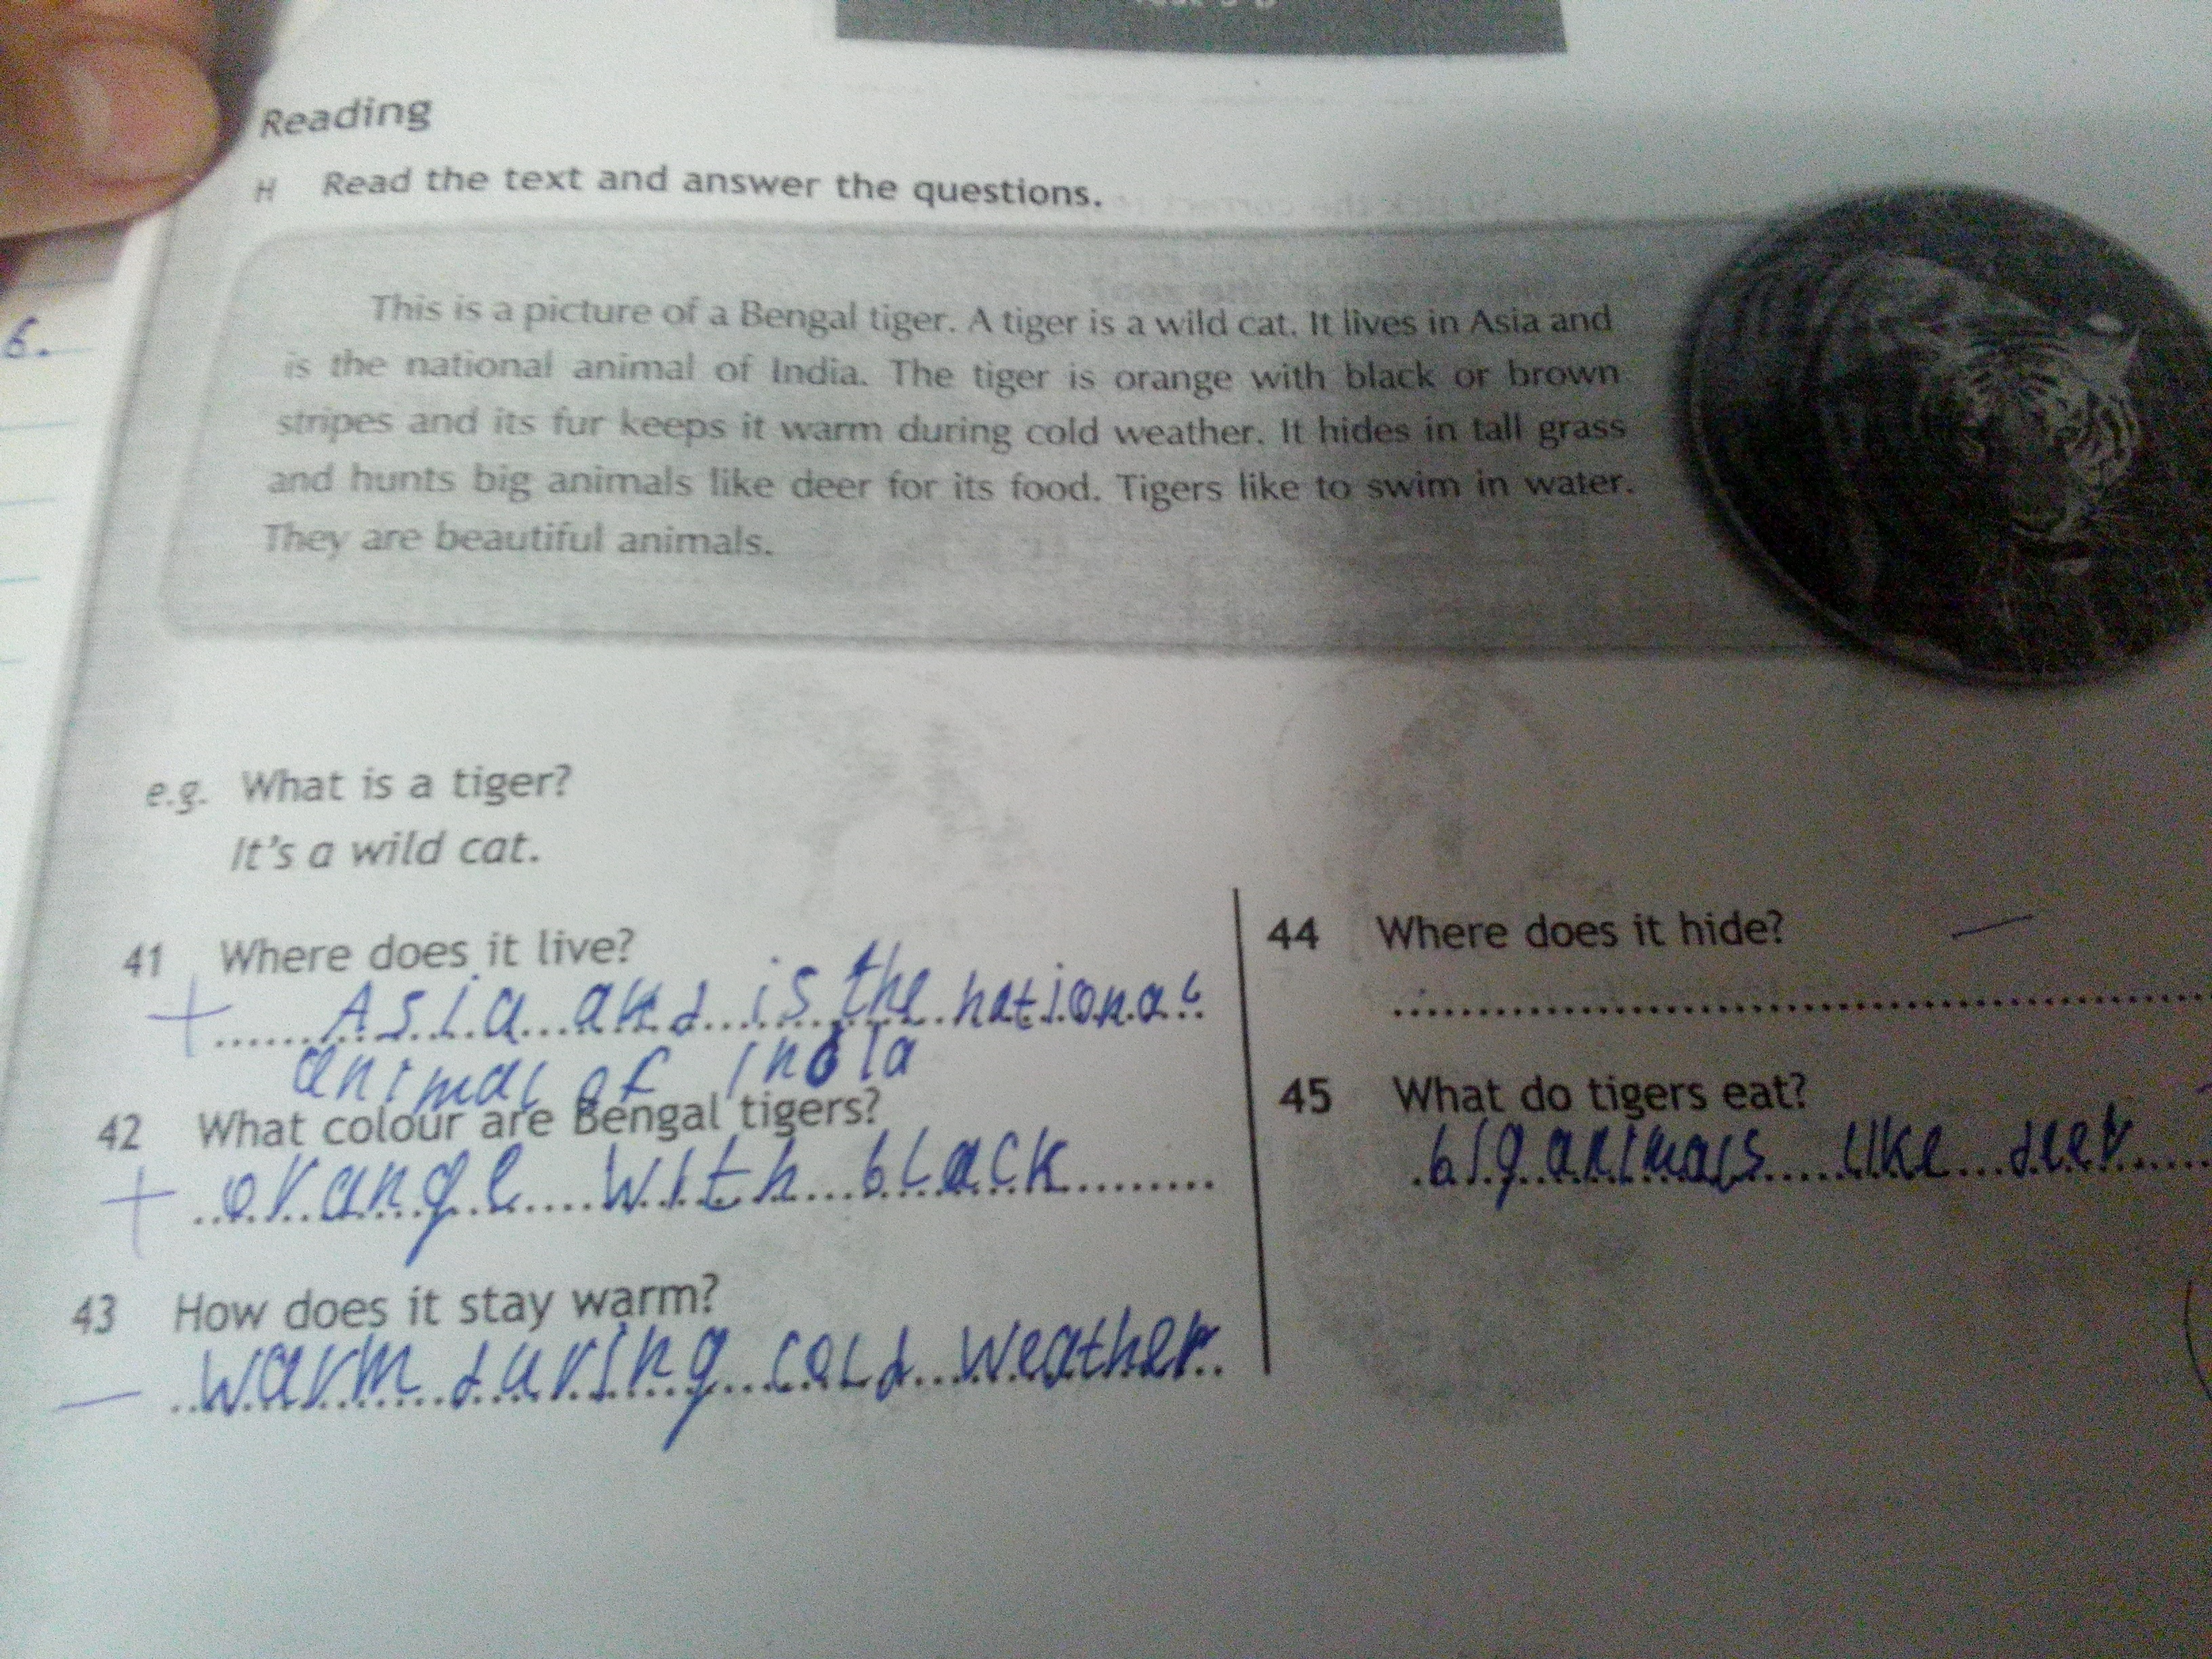 Reading
H Read the text and answer the questions.
This is a picture of a Bengal tiger. A tiger is a wild cat. It lives in Asia and
is the national animal of India. The tiger is orange with black or brown
stripes and its fur keeps it warm during cold weather. It hides in tall grass
and hunts big animals like deer for its food. Tigers like to swim in water.
They are beautiful animals.
6.
e.g. What is a tiger?
It's a wild cat.
41 Where does it live?
+ Asia and is the national
animal of India
42 What colour are Bengal tigers?
+ orange with black
43 How does it stay warm?
— warm during cold weather
44 Where does it hide? —
45 What do tigers eat?
big animals like deer